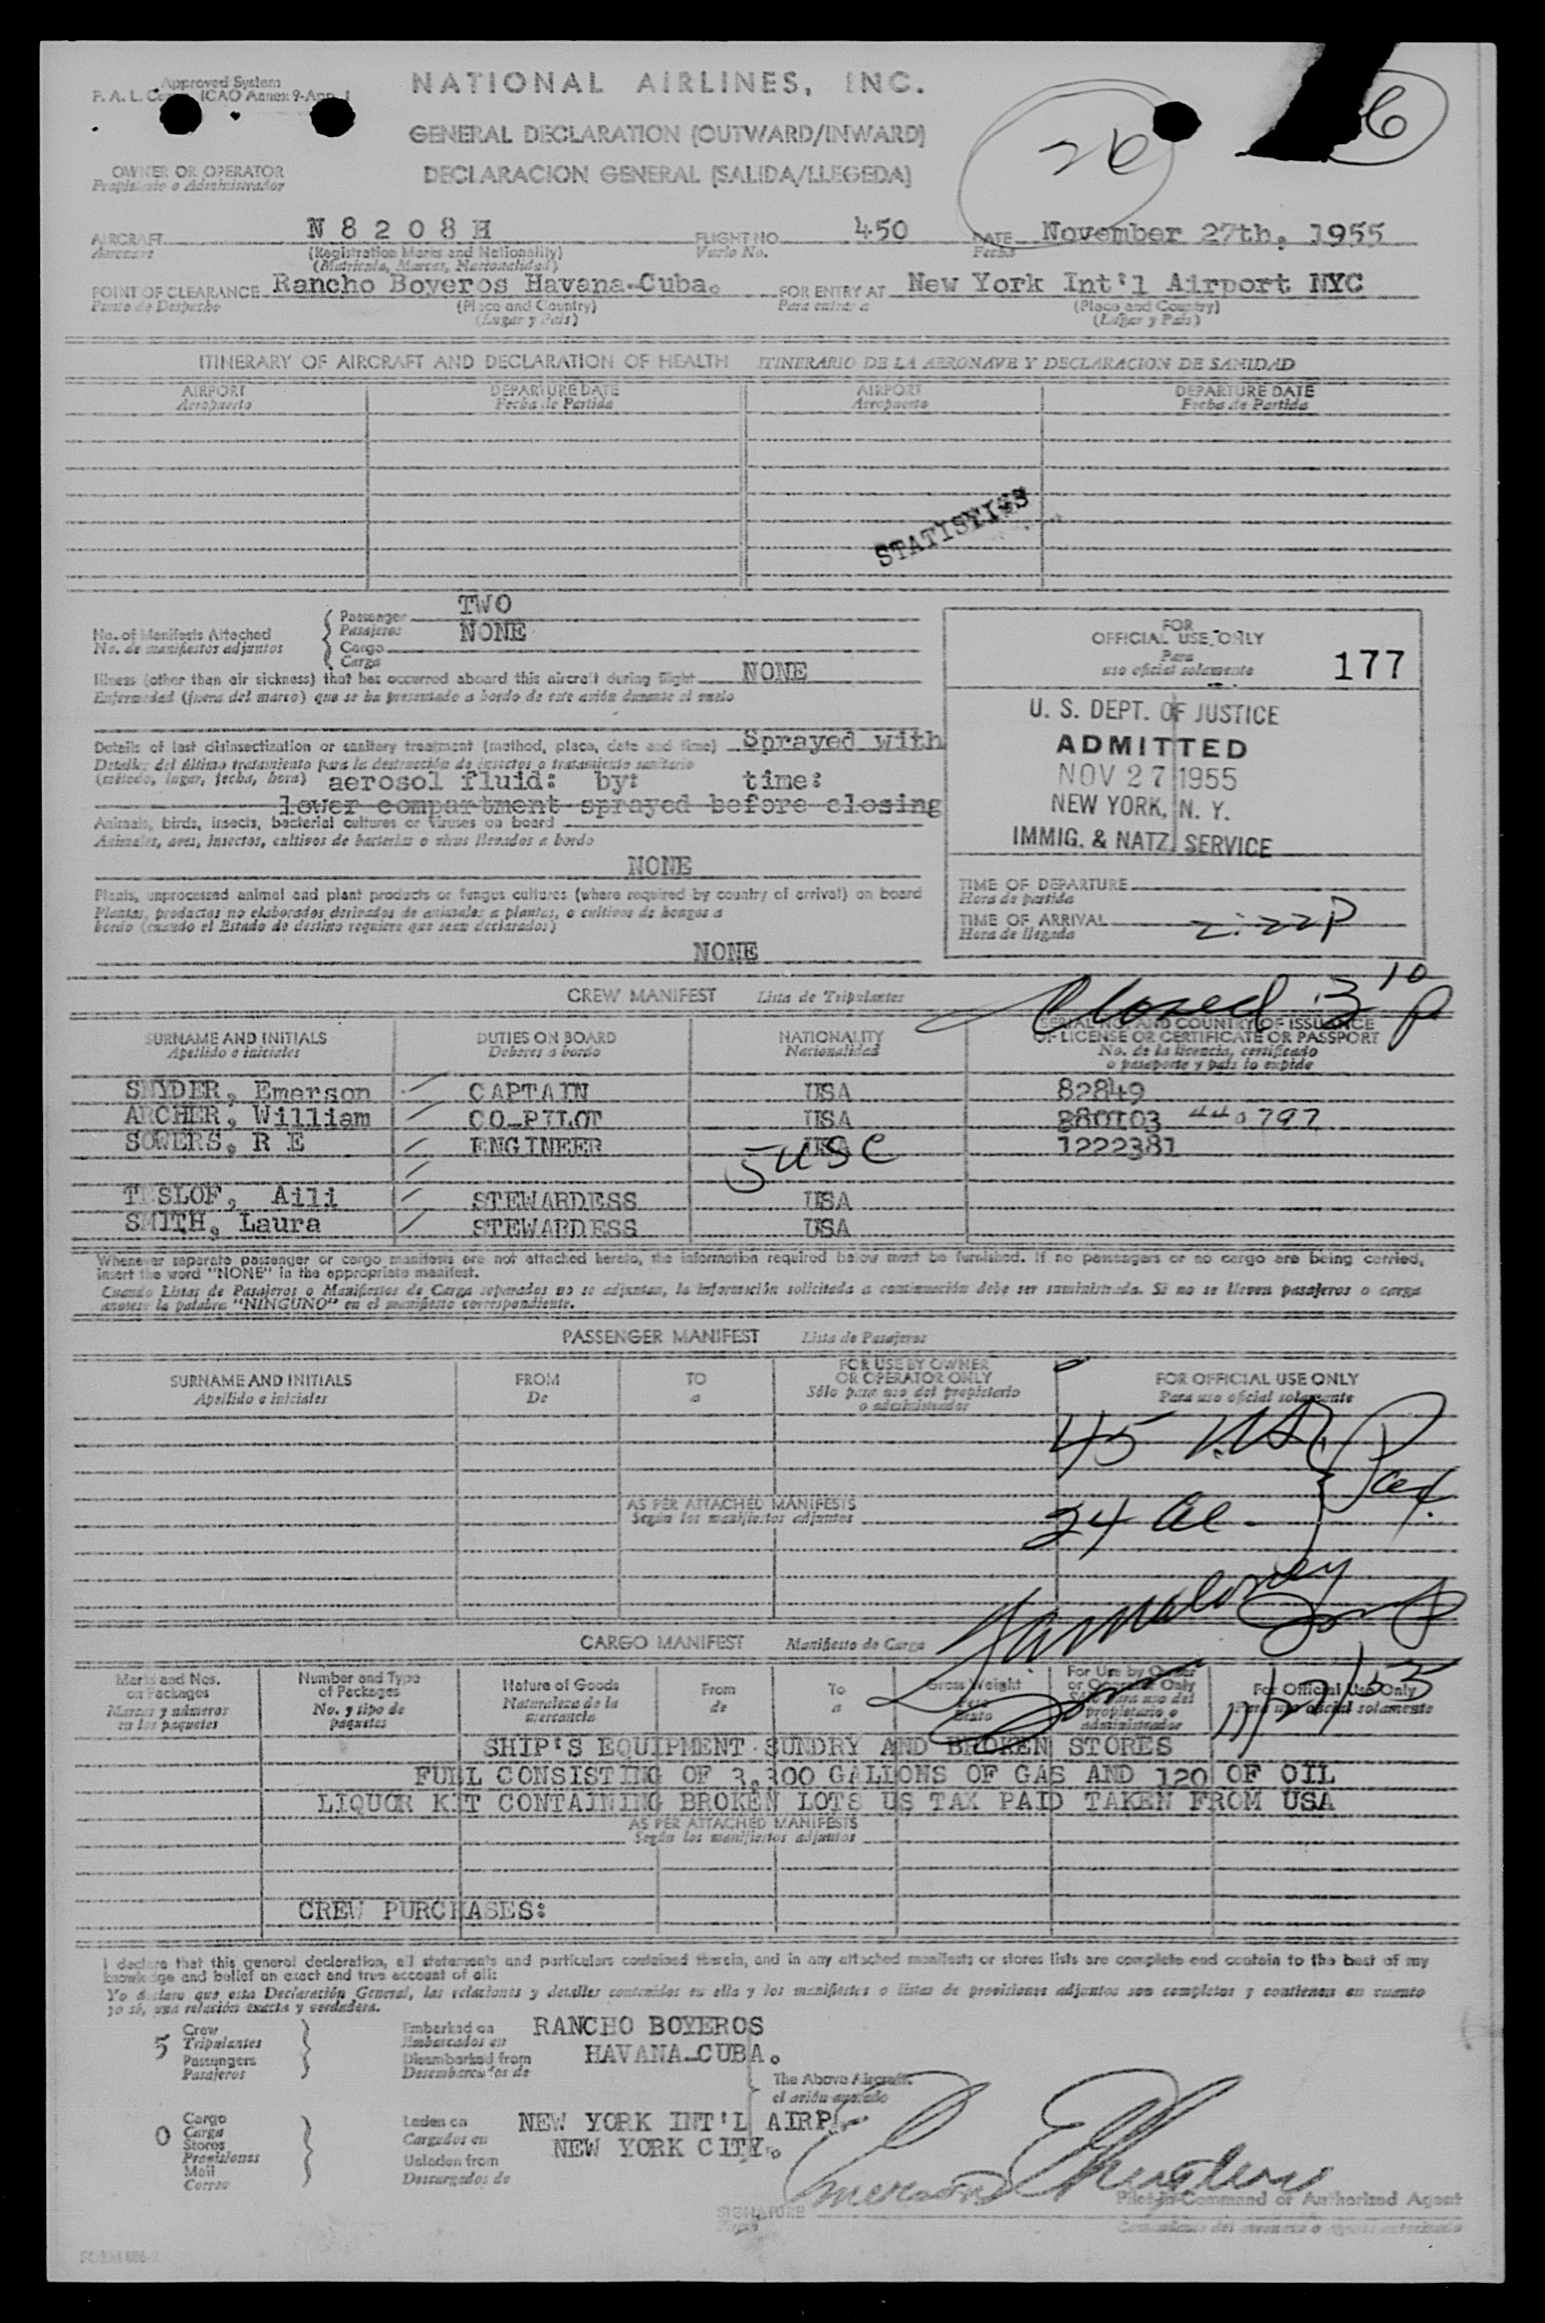 Approved System
NATIONAL AIRLINES, INC.
F. A. L. ICAO Annex 9-App. 1
26
6
GENERAL DECLARATION (OUTWARD/INWARD)
OWNER OR OPERATOR
DECLARACION GENERAL (SALIDA/LLEGEDA)
Propietario o Administrador
AIRCRAFT N 8 2 0 8 H FLIGHT NO. 450 DATE November 27th, 1955
Aeronave (Registration Marks and Nationality) Vuelo No. Fecha
(Matricula, Marcas, Nacionalidad)
POINT OF CLEARANCE Rancho Boyeros Havana-Cuba. FOR ENTRY AT New York Int'l Airport NYC
Punto de Despacho (Place and Country) Para entrar a (Place and Country)
(Lugar y Pais) (Lugar y Pais)
ITINERARY OF AIRCRAFT AND DECLARATION OF HEALTH ITINERARIO DE LA AERONAVE Y DECLARACION DE SANIDAD
AIRPORT DEPARTURE DATE AIRPORT DEPARTURE DATE
Aeropuerto Fecha de Partida Aeropuerto Fecha de Partida
STATISTICS
TWO
Passenger
No. of Manifests Attached Pasajeros NONE
No. de manifiestos adjuntos Cargo
Carga
Illness (other than air sickness) that has occurred aboard this aircraft during flight NONE
Enfermedad (fuera del mareo) que se ha presentado a bordo de este avión durante el vuelo
Details of last disinsectization or sanitary treatment (method, place, date and time) Sprayed with
Detalles del último tratamiento para la destrucción de insectos o tratamiento sanitario
(método, lugar, fecha, hora) aerosol fluid: by: time:
lower compartment sprayed before closing
Animals, birds, insects, bacterial cultures or viruses on board
Animales, aves, insectos, cultivos de bacterias o virus llevados a bordo
NONE
Plants, unprocessed animal and plant products or fungus cultures (where required by country of arrival) on board
Plantas, productos no elaborados derivados de animales a plantas, o cultivos de hongos a
bordo (cuando el Estado de destino requiere que sean declarados)
NONE
FOR
OFFICIAL USE ONLY
Para
uso oficial solamente
177
U. S. DEPT. OF JUSTICE
ADMITTED
NOV 27 1955
NEW YORK, N. Y.
IMMIG. & NATZ. SERVICE
TIME OF DEPARTURE
Hora de partida
TIME OF ARRIVAL 2:22P
Hora de llegada
Closed 3 10 P
CREW MANIFEST Lista de Tripulantes
SURNAME AND INITIALS DUTIES ON BOARD NATIONALITY SERIAL NO. AND COUNTRY OF ISSUANCE
OF LICENSE OR CERTIFICATE OR PASSPORT
Apellido e iniciales Deberes a bordo Nacionalidad No. de la licencia, certificado
o pasaporte y pais lo expide
SNYDER, Emerson CAPTAIN USA 82849
ARCHER, William CO-PILOT USA 280103 440797
SOWERS, R E ENGINEER USA 1222381
5 USC
TESLOF, Aili STEWARDESS USA
SMITH, Laura STEWARDESS USA
Whenever separate passenger or cargo manifests are not attached hereto, the information required below must be furnished. If no passengers or no cargo are being carried,
insert the word "NONE" in the appropriate manifest.
Cuando Listas de Pasajeros o Manifiestos de Carga separados no se adjuntan, la información solicitada a continuación debe ser suministrada. Si no se llevan pasajeros o carga
anotese la palabra "NINGUNO" en el manifiesto correspondiente.
PASSENGER MANIFEST Lista de Pasajeros
SURNAME AND INITIALS FROM TO FOR USE BY OWNER
OR OPERATOR ONLY FOR OFFICIAL USE ONLY
Apellido e iniciales De a Sólo para uso del propietario
o administrador Para uso oficial solamente
45 US
Pax.
AS PER ATTACHED MANIFESTS
Según los manifiestos adjuntos
24 Al -
CARGO MANIFEST Manifiesto de Carga
Marks and Nos.
on Packages
Marcas y números
en los paquetes
Number and Type
of Packages
No. y tipo de
paquetes
Nature of Goods
Naturaleza de la
mercancia
From
de
To
a
Gross Weight
Peso
Bruto
For Use by Owner
or Operator Only
Sólo para uso del
propietario o
administrador
For Official Use Only
Para uso oficial solamente
11/27/55
SHIP'S EQUIPMENT SUNDRY AND BROKEN STORES
FUEL CONSISTING OF 3,300 GALLONS OF GAS AND 120 OF OIL
LIQUOR KIT CONTAINING BROKEN LOTS US TAX PAID TAKEN FROM USA
AS PER ATTACHED MANIFESTS
Según los manifiestos adjuntos
CREW PURCHASES:
I declare that this general declaration, all statements and particulars contained therein, and in any attached manifests or stores lists are complete and contain to the best of my
knowledge and belief an exact and true account of all:
Yo declaro que esta Declaración General, las relaciones y detalles contenidos en ella y los manifiestos o listas de provisiones adjuntos son completos y contienen en cuanto
yo sé, una relación exacta y verdadera.
5 Crew
Tripulantes
Passengers
Pasajeros
Embarked on RANCHO BOYEROS
Embarcados en
Disembarked from HAVANA-CUBA.
Desembarcados de
The Above Aircraft.
el avión anotado
0 Cargo
Carga
Stores
Provisiones
Mail
Correo
Laden on NEW YORK INT'L AIRP
Cargados en
NEW YORK CITY.
Unladen from
Descargados de
SIGNATURE
Pilot-in-Command or Authorized Agent